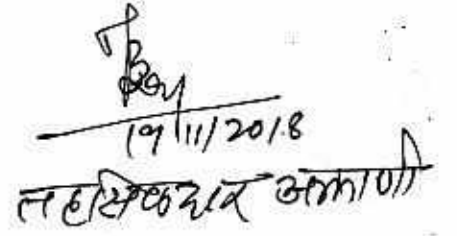 19/11/2018
तहसिलदार अक्राणी